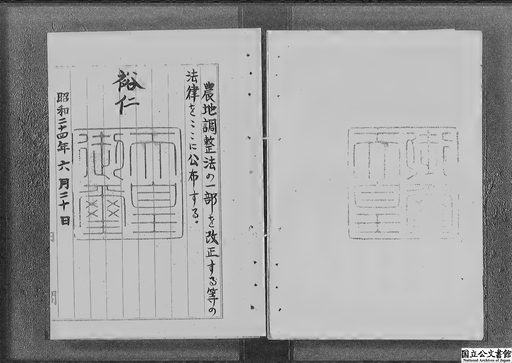 農地調整法の一部を改正する等の
法律をここに公布する。
裕仁
天皇
御璽
昭和二十四年六月二十日
国立公文書館
National Archives of Japan